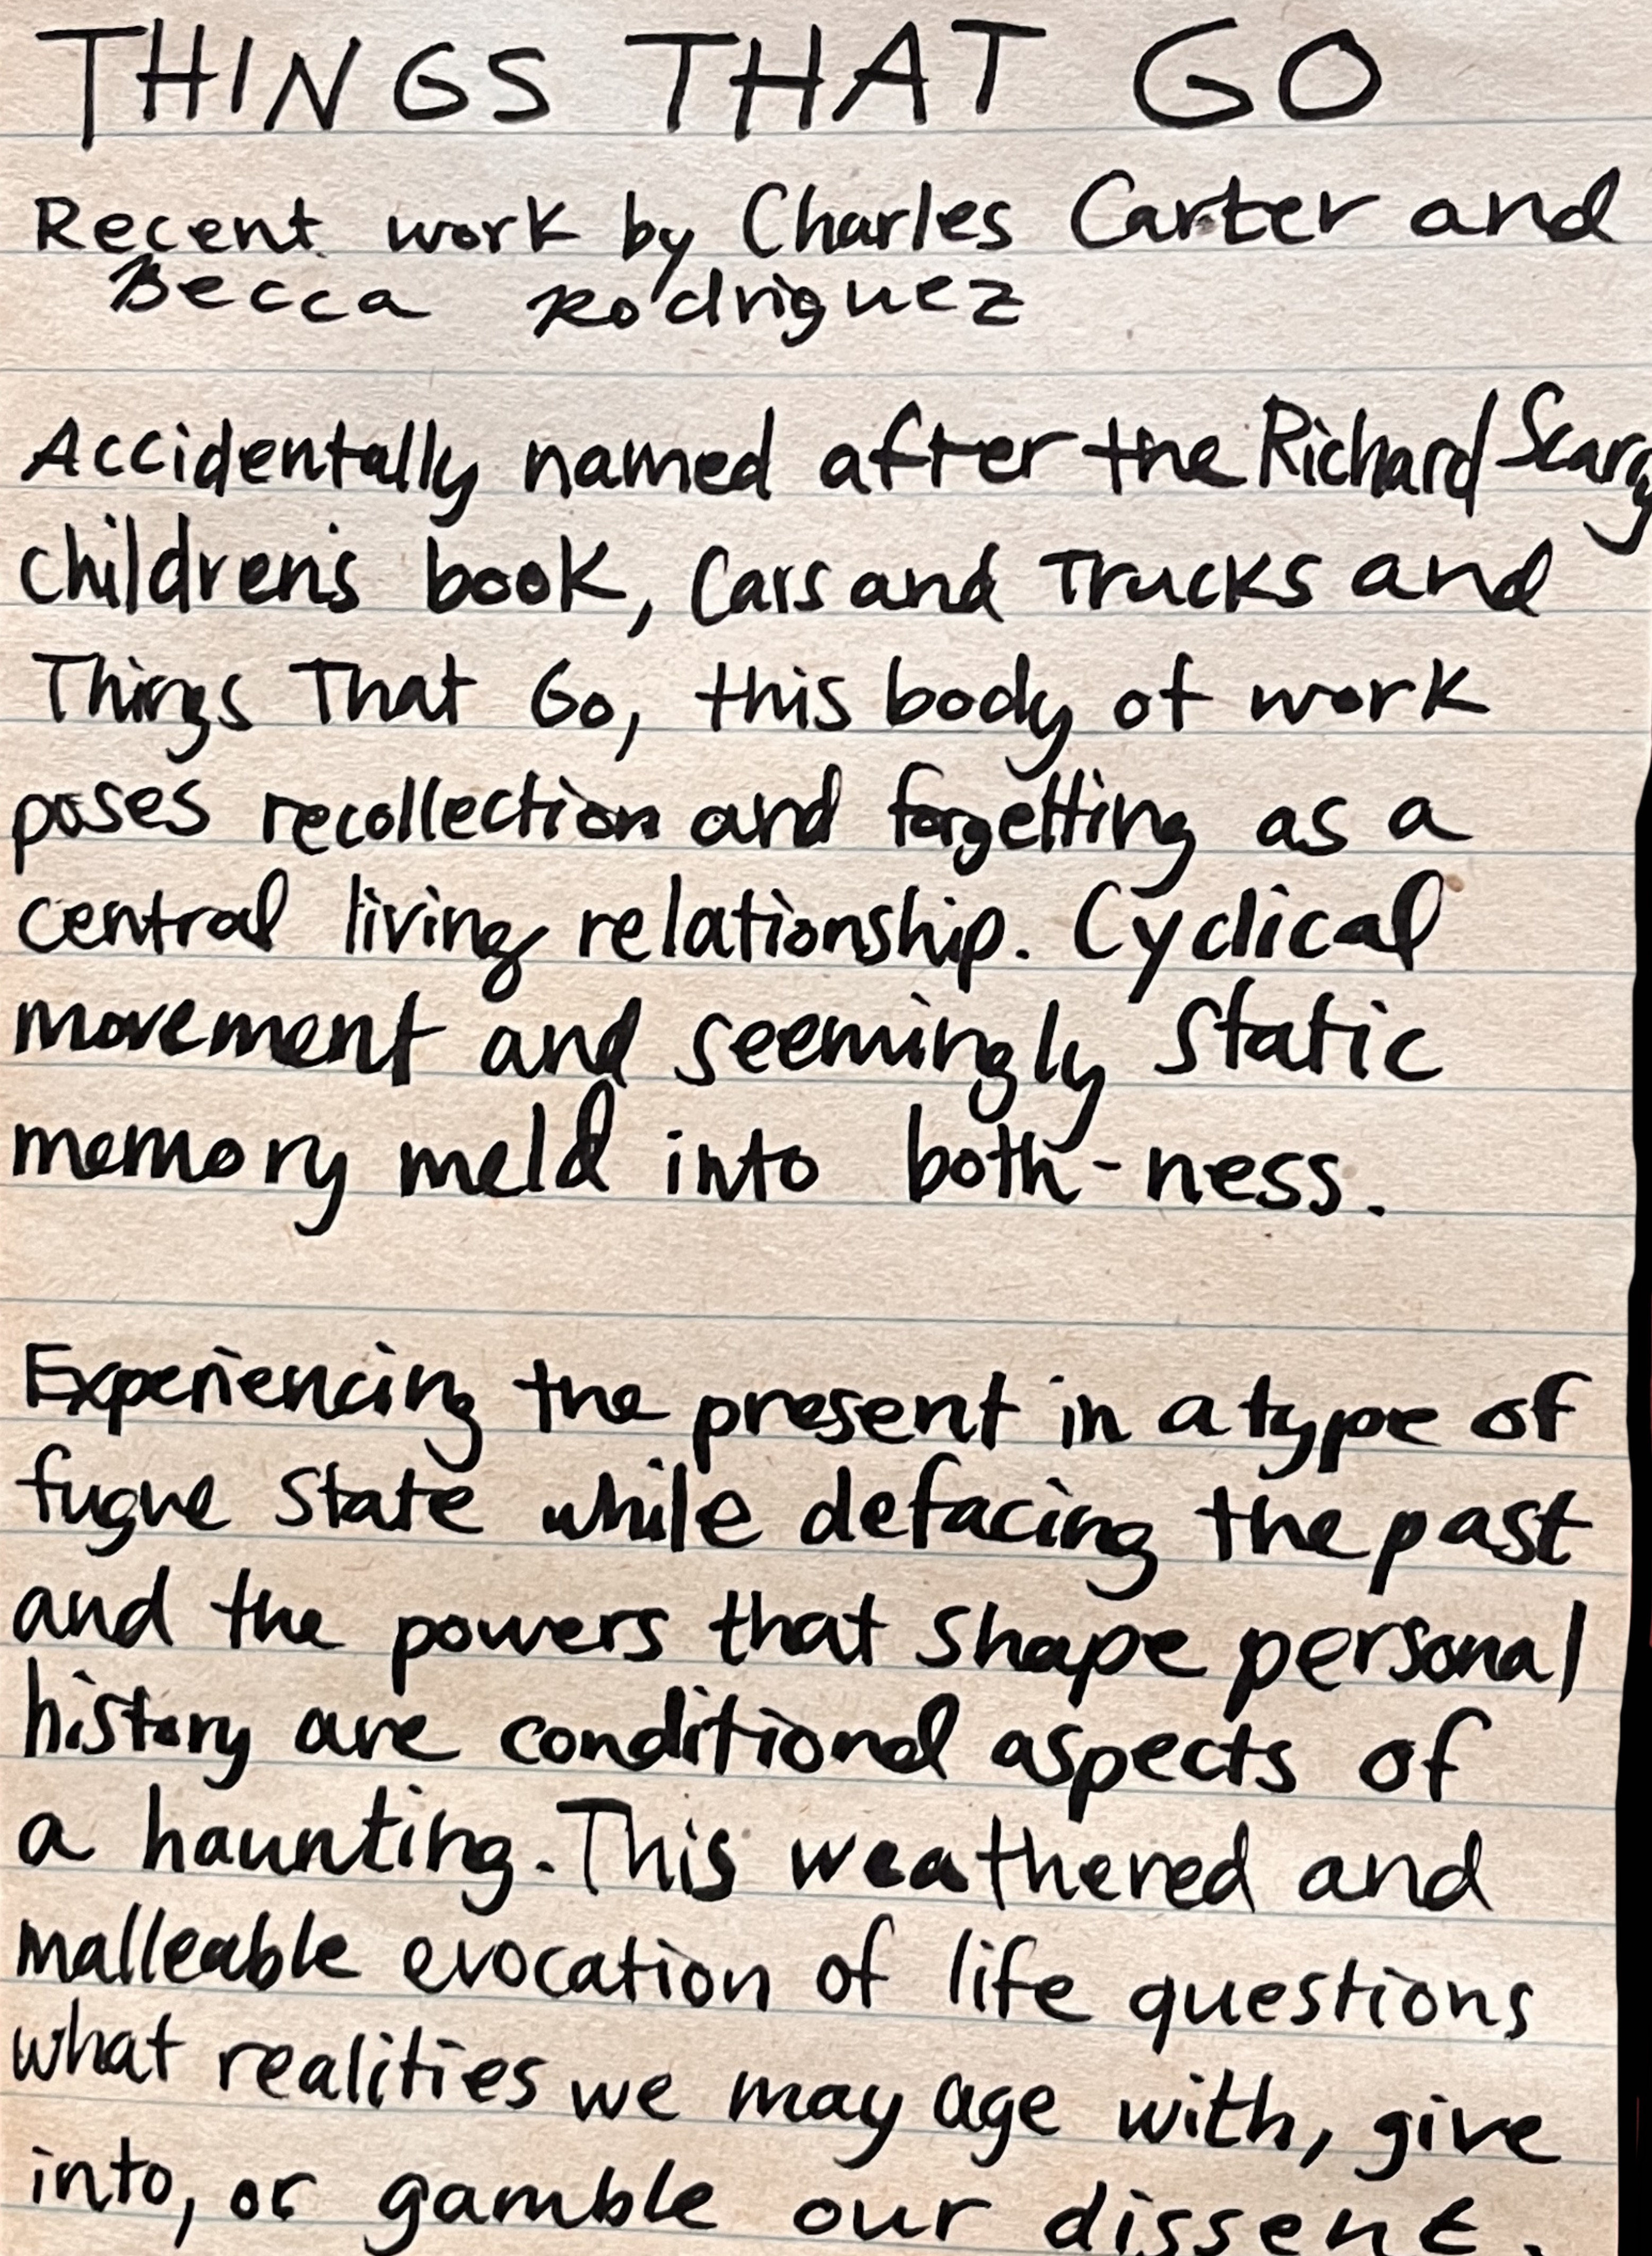 THINGS THAT GO
Recent work by Charles Carter and
Becca Rodriguez
Accidentally named after the Richard Scarry
children's book, Cars and Trucks and
Things That Go, this body of work
poses recollection and forgetting as a
central living relationship. Cyclical
movement and seemingly static
memory meld into both-ness.
Experiencing the present in a type of
fugue state while defacing the past
and the powers that shape personal
history are conditional aspects of
a haunting. This weathered and
malleable evocation of life questions
what realities we may age with, give
into, or gamble our dissent.